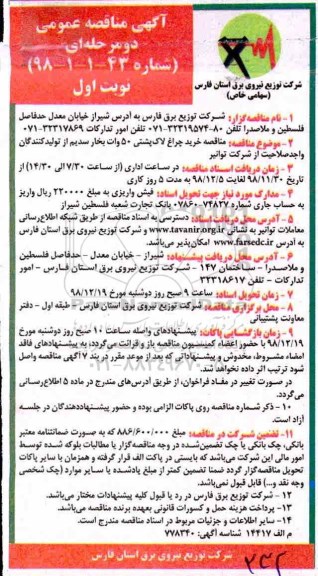 آگهی مناقصه عمومی
دو مرحله‌ای
(شماره ۴۳-۱-۱-۹۸)
نوبت اول
شرکت توزیع نیروی برق استان فارس
(سهامی خاص)
۱- نام مناقصه‌گزار: شرکت توزیع برق فارس به آدرس شیراز خیابان معدل حدفاصل
فلسطین و ملاصدرا تلفن ۸۰-۳۲۳۱۹۵۷۴-۰۷۱ تلفن امور تدارکات ۳۲۳۱۷۸۶۹-۰۷۱
۲- موضوع مناقصه: مناقصه خرید چراغ لاک‌پشتی ۵۰ وات بخار سدیم از تولیدکنندگان
واجدصلاحیت از شرکت توانیر
۳- زمان دریافت اسناد مناقصه: در ساعت اداری (از ساعت ۷/۳۰ الی ۱۴/۳۰) از
تاریخ ۹۸/۱۱/۳۰ لغایت ۹۸/۱۲/۵ به مدت ۵ روز کاری
۴- مدارک مورد نیاز جهت تحویل اسناد: فیش واریزی به مبلغ ۲۲۰۰۰۰ ریال واریز
به حساب جاری شماره ۷۴۸۳۷-۰۷۸۶۰ بانک تجارت شعبه فلسطین شیراز
۵- آدرس محل دریافت اسناد: دسترسی به اسناد مناقصه از طریق شبکه اطلاع‌رسانی
معاملات توانیر به نشانی www.tavanir.org.ir و شرکت توزیع نیروی برق استان فارس
به آدرس www.farsedc.ir امکان‌پذیر می‌باشد.
۶- آدرس محل دریافت پیشنهاد: شیراز - خیابان معدل - حدفاصل فلسطین
و ملاصدرا - ساختمان ۱۴۷ - شرکت توزیع نیروی برق استان فارس - امور
تدارکات - تلفن ۳۲۳۱۸۶۱۷
۷- زمان تحویل اسناد: ساعت ۹ صبح روز دوشنبه مورخ ۹۸/۱۲/۱۹
۸- محل برگزاری مناقصه: شرکت توزیع برق فارس - طبقه اول - دفتر
معاونت پشتیبانی
۹- زمان بازگشایی پاکات: پیشنهادهای واصله ساعت ۱۰ صبح روز دوشنبه مورخ
۹۸/۱۲/۱۹ با حضور اعضاء کمیسیون مناقصه باز و قرائت می‌گردد، به پیشنهادهای فاقد
امضاء مشروط، مخدوش و پیشنهاداتی که بعد از موعد مقرر در بند ۷ آگهی مناقصه واصل
شود ترتیب اثر داده نخواهد شد.
در صورت تغییر در مفاد فراخوان، از طریق آدرس‌های مندرج در ماده ۵ اطلاع‌رسانی
می‌گردد.
۱۰- ذکر شماره مناقصه روی پاکات الزامی بوده و حضور پیشنهاددهندگان در جلسه
آزاد است.
۱۱- تضمین شرکت در مناقصه: مبلغ ۸۸۶/۶۰۰/۰۰۰ که به صورت ضمانتنامه معتبر
بانکی، چک بانکی یا چک تضمین‌شده در وجه مناقصه‌گزار یا مطالبات بلوکه شده توسط
امور مالی این شرکت می‌باشد که بایستی در پاکت الف قرار گرفته و همزمان با سایر پاکات
تحویل مناقصه‌گزار گردد ضمنا تضمین کمتر از مبلغ یادشده یا سایر موارد (چک شخصی
وجه نقد و...) قابل قبول نمی‌باشد.
۱۲- شرکت توزیع برق فارس در رد یا قبول کلیه پیشنهادات مختار می‌باشد.
۱۳- پرداخت هزینه حمل و کسورات قانونی بعهده برنده مناقصه می‌باشد.
۱۴- سایر اطلاعات و جزئیات مربوط در اسناد مناقصه مندرج است.
م الف ۱۴۴۱۷ شناسه آگهی: ۷۷۸۳۴۰
شرکت توزیع نیروی برق استان فارس